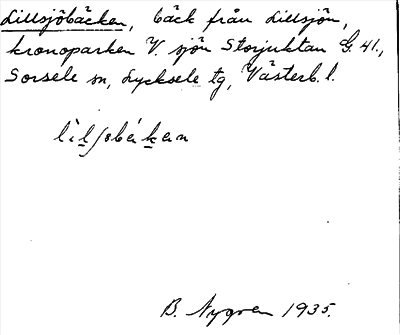 Lillsjöbäcken, bäck från Lillsjön,
kronoparken V. sjön Storjuktan G. 41.,
Sorsele sn, Lycksele tg, Västerb. l.
B. Nygren 1935.